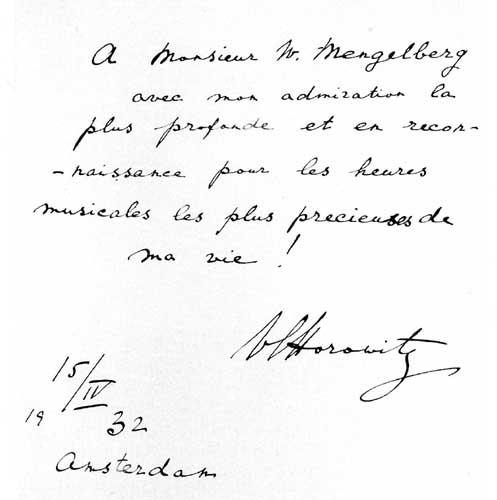 A Monsieur W. Mengelberg
avec mon admiration la
plus profonde et en recon-
-naissance pour les heures
musicales les plus precieuses de
ma vie !
Vl Horowitz
15/IV
19 32
Amsterdam